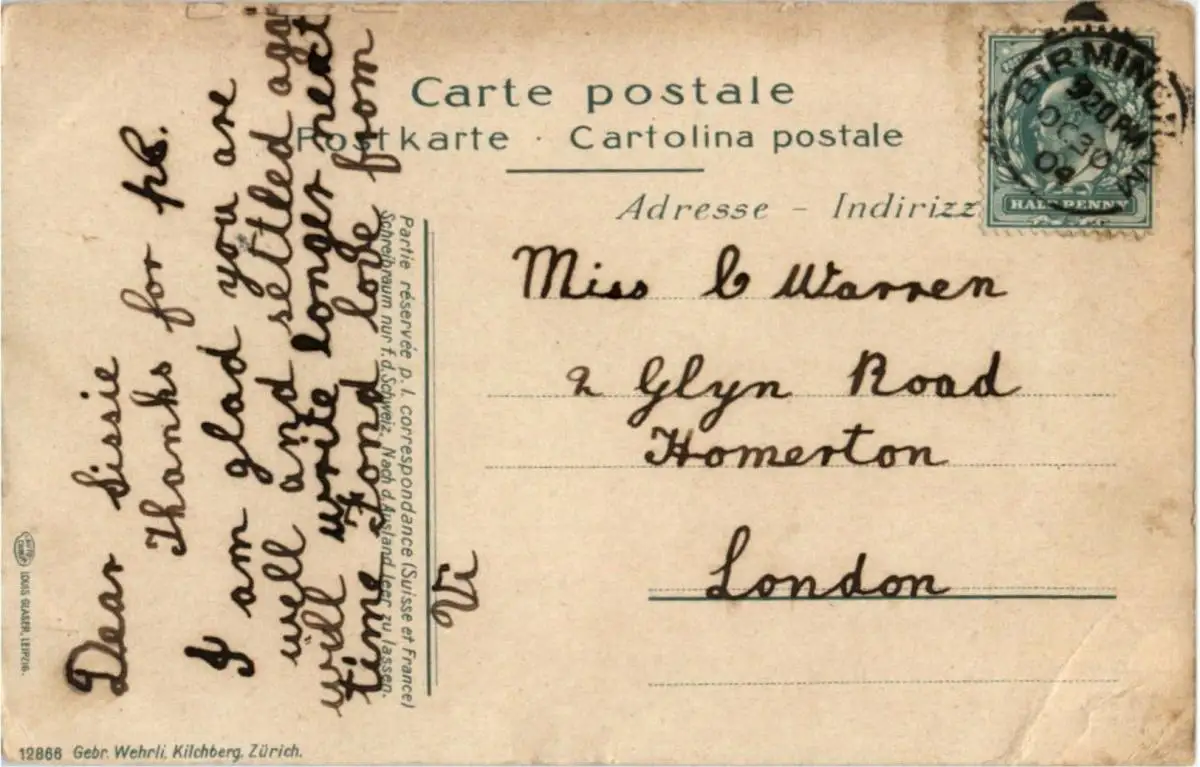 Carte postale
Postkarte · Cartolina postale
Adresse – Indirizz
BIRMINGHAM
9 20 PM
OC 30
09
HALFPENNY
Miss C Warren
2 Glyn Road
Homerton
London
Dear Sissie
Thanks for p.c.
I am glad you are
well and settled agai
will write longer next
time Fond love from
Vi
Partie réservée p. l. correspondance (Suisse et France)
Schreibraum nur f. d. Schweiz. Nach d. Ausland leer zu lassen.
LOUIS GLASER, LEIPZIG.
12866 Gebr. Wehrli, Kilchberg, Zürich.